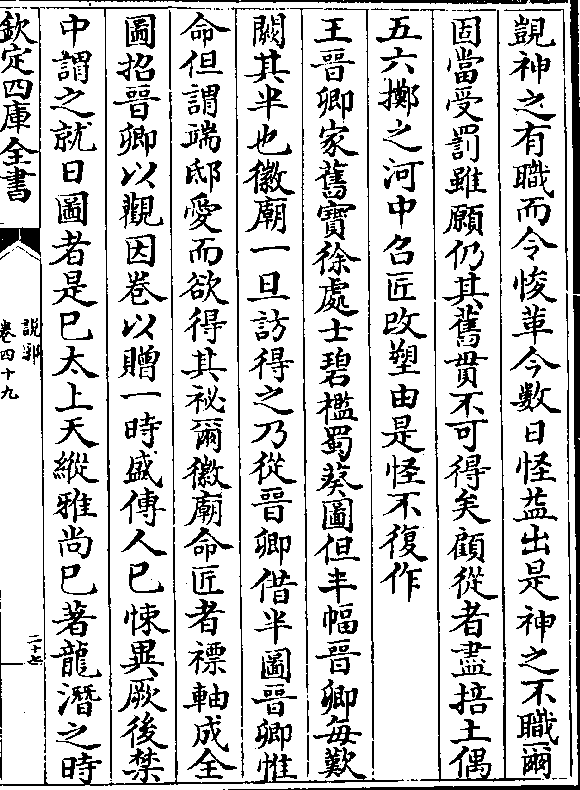 覬神之有職而令悛革今數日怪益出是神之不職爾
固當受罰雖願仍其舊貫不可得矣顧從者盡掊土偶
五六擲之河中召匠改塑由是怪不復作
王晉卿家舊寶徐處士碧檻蜀葵圖但半幅晉卿每歎
闕其半也徽廟一旦訪得之乃從晉卿借半圖晉卿惟
命但謂端邸愛而欲得其祕爾徽廟命匠者褾軸成全
圖招晉卿以觀因卷以贈一時盛傳人已悚異厥後禁
中謂之就日圖者是已太上天縱雅尚已著龍潛之時
欽定四庫全書
說郛
卷四十九
二十七